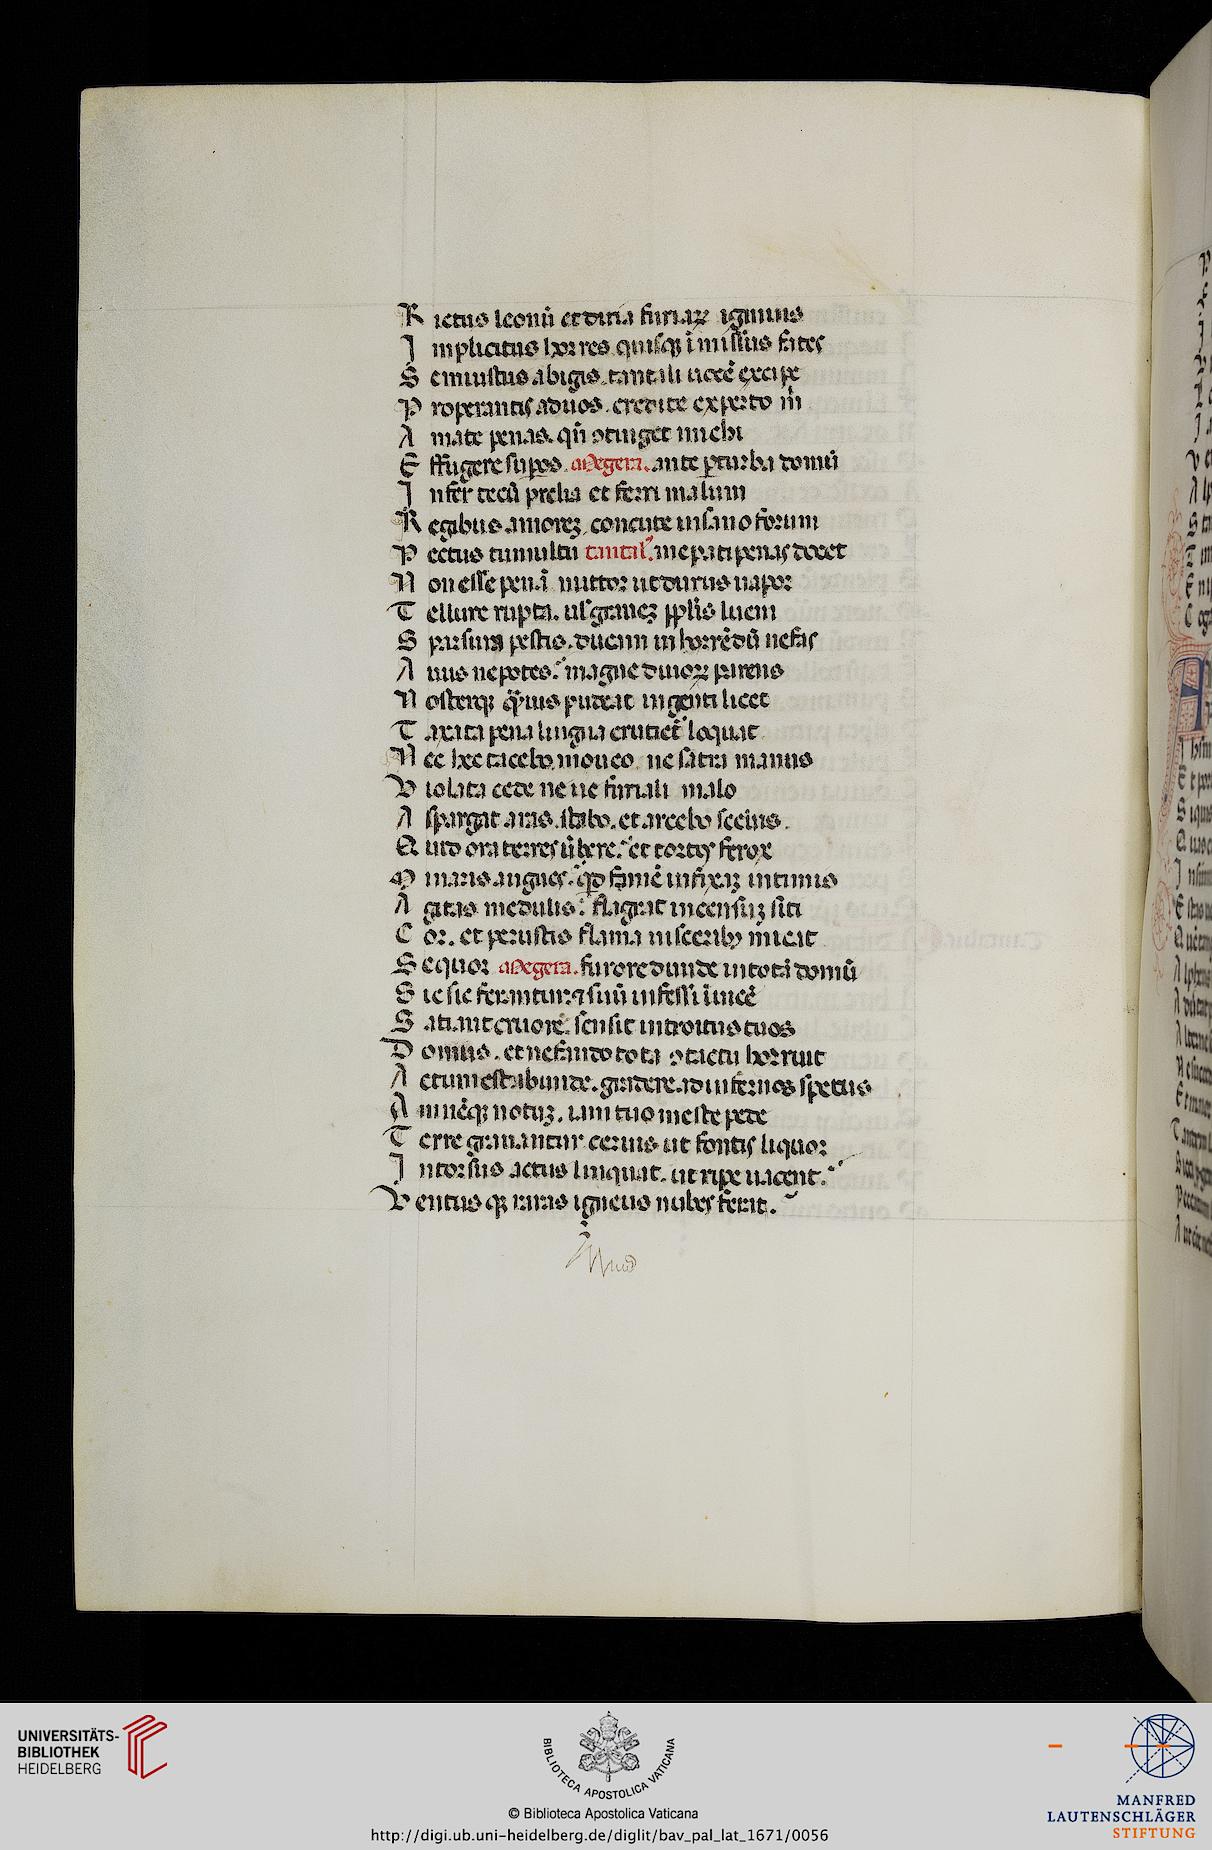 R ictus leonū et dira furiaꝝ agmina
I mplicitus horres quisqꝫ ĩmissas faces
S emiustus abigis tantali uocē excipe
P roperantis ad uos. credite experto m̄
A mate penas. qn̄ ɔtinget michi
E ffugere suꝑos. Megera. ante ꝑturba domū
I nfer tecū prelia et ferri malum
R egibus amoreꝫ concute insano ferum
P ectus tumultu tantal᾽. me pati penas decet
N on esse penā mittor ut dirus uapor
T ellure rupta. ul᾽ graueꝫ ppl̄is luem
S parsura pestis. ducam in horrēdū nefas
A uus nepotes. magne diuoꝝ parens
N osterqꝫ qͣuis pudeat ingenti licet
T axata pena lingua crucieť loquax
N ec hec tacebo moneo. ne sacra manus
V iolata cede neue furiali malo
A spargat aras. stabo. et arcebo scelus.
Q uid ora terres ūbere. et tortos ferox
M inaris angues. qͥd famē infixaꝫ intimis
A gitas medulis. flagrat incensuꝫ siti
C or. et perustis flāma uisceribꝫ micat
S equor Megera. furorē diuide in totā domū
S ic sic ferantur ⁊ suū infessi ĩuicē
S itiant cruorē. sensit introitus tuos
D omus. et nefando tota ɔtactu horruit
A ctum est abunde. gradere ad infernos specus
A mnēqꝫ notuꝫ. iam tuo meste pede
T erre grauantur cernis ut fontis liquor
I ntorsus actus linquat. ut ripe uacent.
V entus qꝫ raras igneus nubes ferat.
UNIVERSITÄTS-
BIBLIOTHEK
HEIDELBERG
BIBLIOTECA APOSTOLICA VATICANA
© Biblioteca Apostolica Vaticana
http://digi.ub.uni-heidelberg.de/diglit/bav_pal_lat_1671/0056
MANFRED
LAUTENSCHLÄGER
STIFTUNG